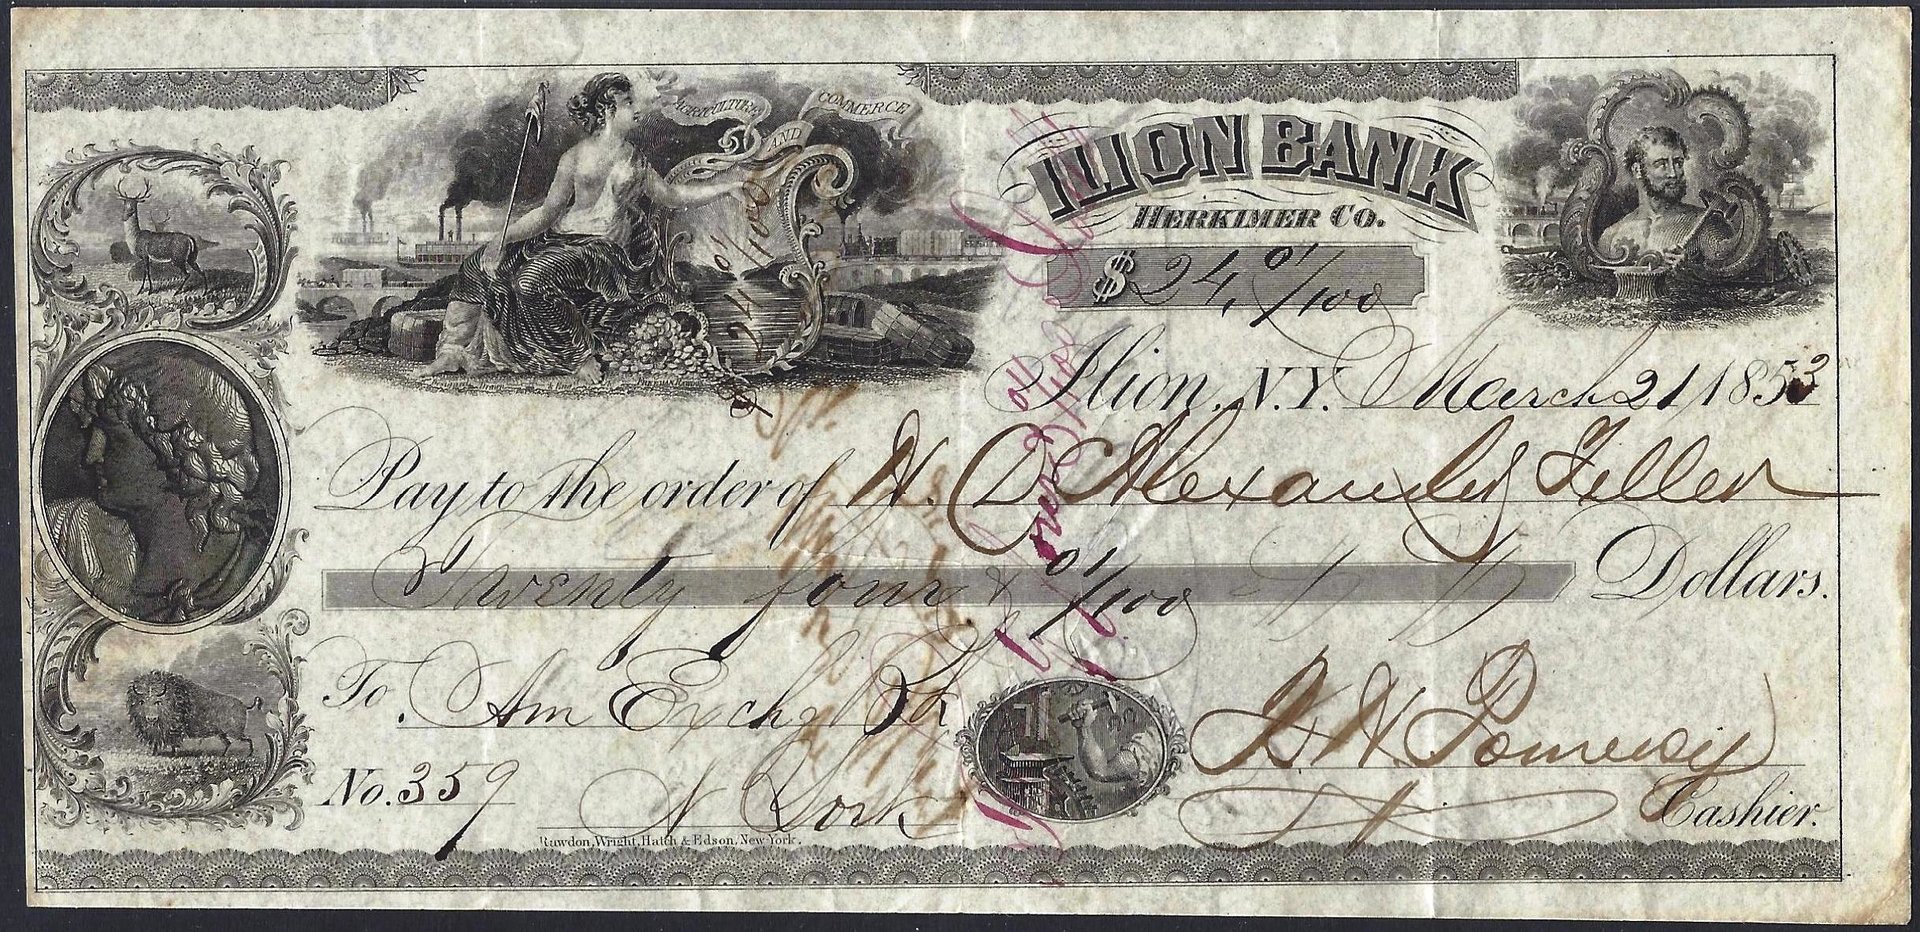 AGRICULTURE AND COMMERCE
ILION BANK
HERKIMER CO.
$24, 01/100
$24 01/100
Ilion, N.Y. March 21 1853
Pay to the order of W. C. Alexander Teller
Twenty four & 01/100 Dollars.
To Am Exchg Bk
N York
No. 359
Cashier.
Rawdon, Wright, Hatch & Edson, New-York.